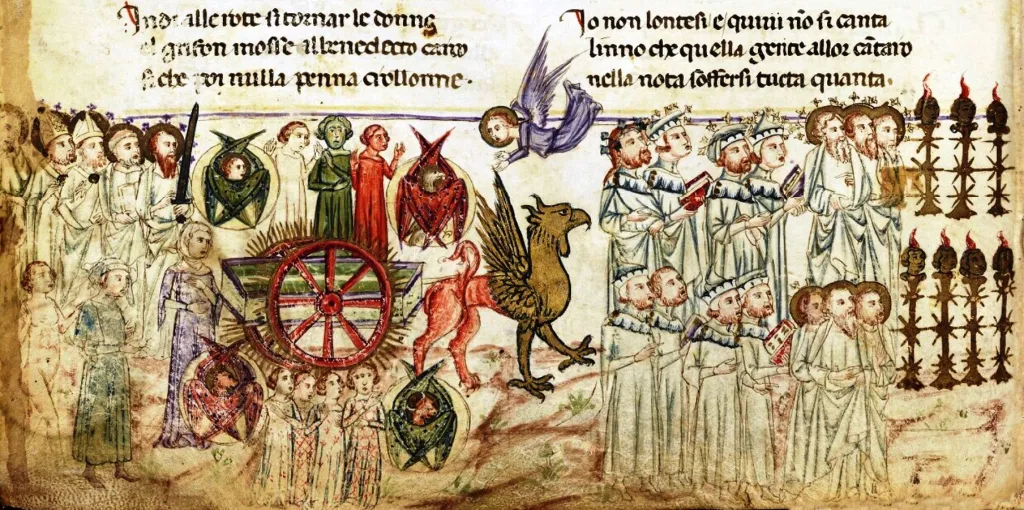 Indi alle rote si tornar le donne
el grifon mosse il benedecto carco
si che poi nulla penna crollonne·
Io non lontesi e quiui nō si canta
linno che quella gente allor cātaro
nella nota soffersi tucta quanta·